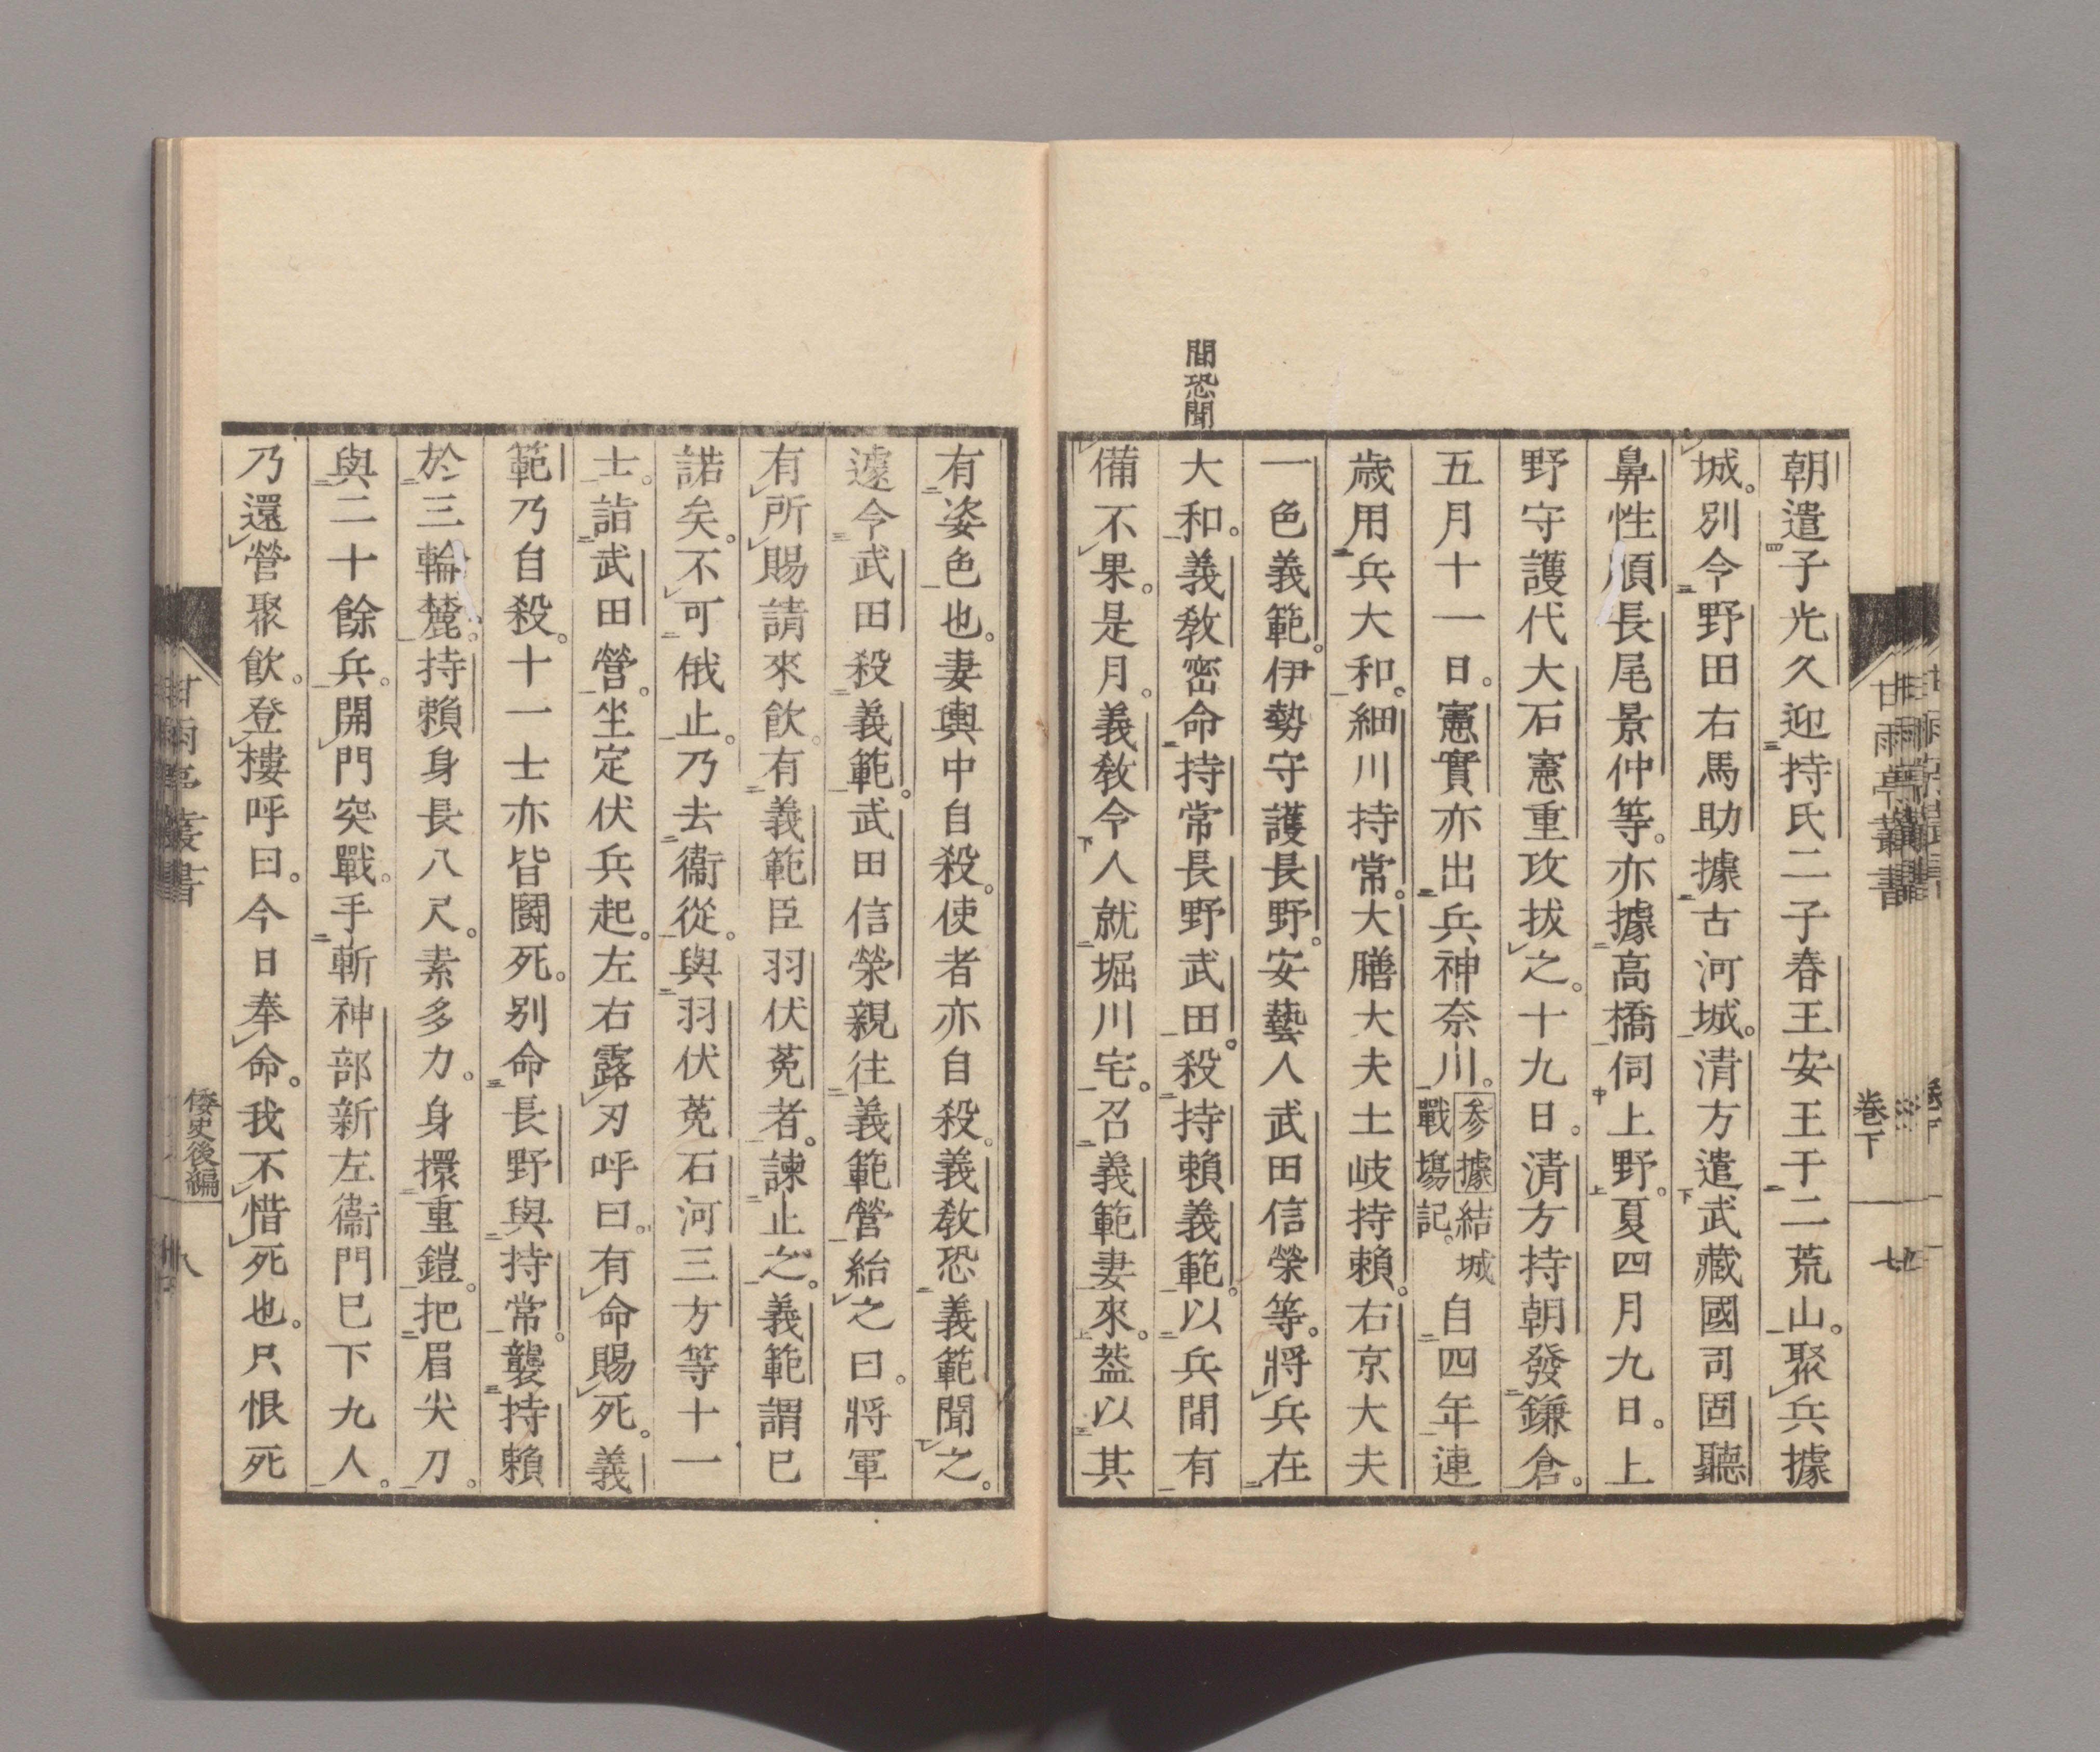 間恐聞
朝遣子光久迎持氏二子春王安王于二荒山。聚兵據
城。別令野田右馬助據古河城。清方遣武藏國司固聽
鼻性順長尾景仲等。亦據高橋伺上野。夏四月九日。上
野守護代大石憲重攻拔之。十九日。清方持朝發鎌倉。
五月十一日。憲實亦出兵神奈川。參據結城戰場記。自四年連
歲用兵大和。細川持常。大膳大夫土岐持賴。右京大夫
一色義範。伊勢守護長野。安藝人武田信榮等。將兵在
大和。義教密命持常長野武田。殺持賴義範。以兵間有
備不果。是月。義教令人就堀川宅。召義範妻來。葢以其
有姿色也。妻輿中自殺。使者亦自殺。義教恐義範聞之。
遽令武田殺義範。武田信榮親往義範營紿之曰。將軍
有所賜請來飲。有義範臣羽伏菟者。諫止之。義範謂已
諾矣。不可俄止。乃去衞從。與羽伏菟石河三方等十一
士。詣武田營。坐定伏兵起。左右露刃呼曰。有命賜死。義
範乃自殺。十一士亦皆鬪死。別命長野與持常。襲持賴
於三輪麓。持賴身長八尺。素多力。身擐重鎧。把眉尖刀。
與二十餘兵。開門突戰。手斬神部新左衞門已下九人。
乃還營聚飲。登樓呼曰。今日奉命。我不惜死也。只恨死
甘雨亭叢書
卷下
倭史後編